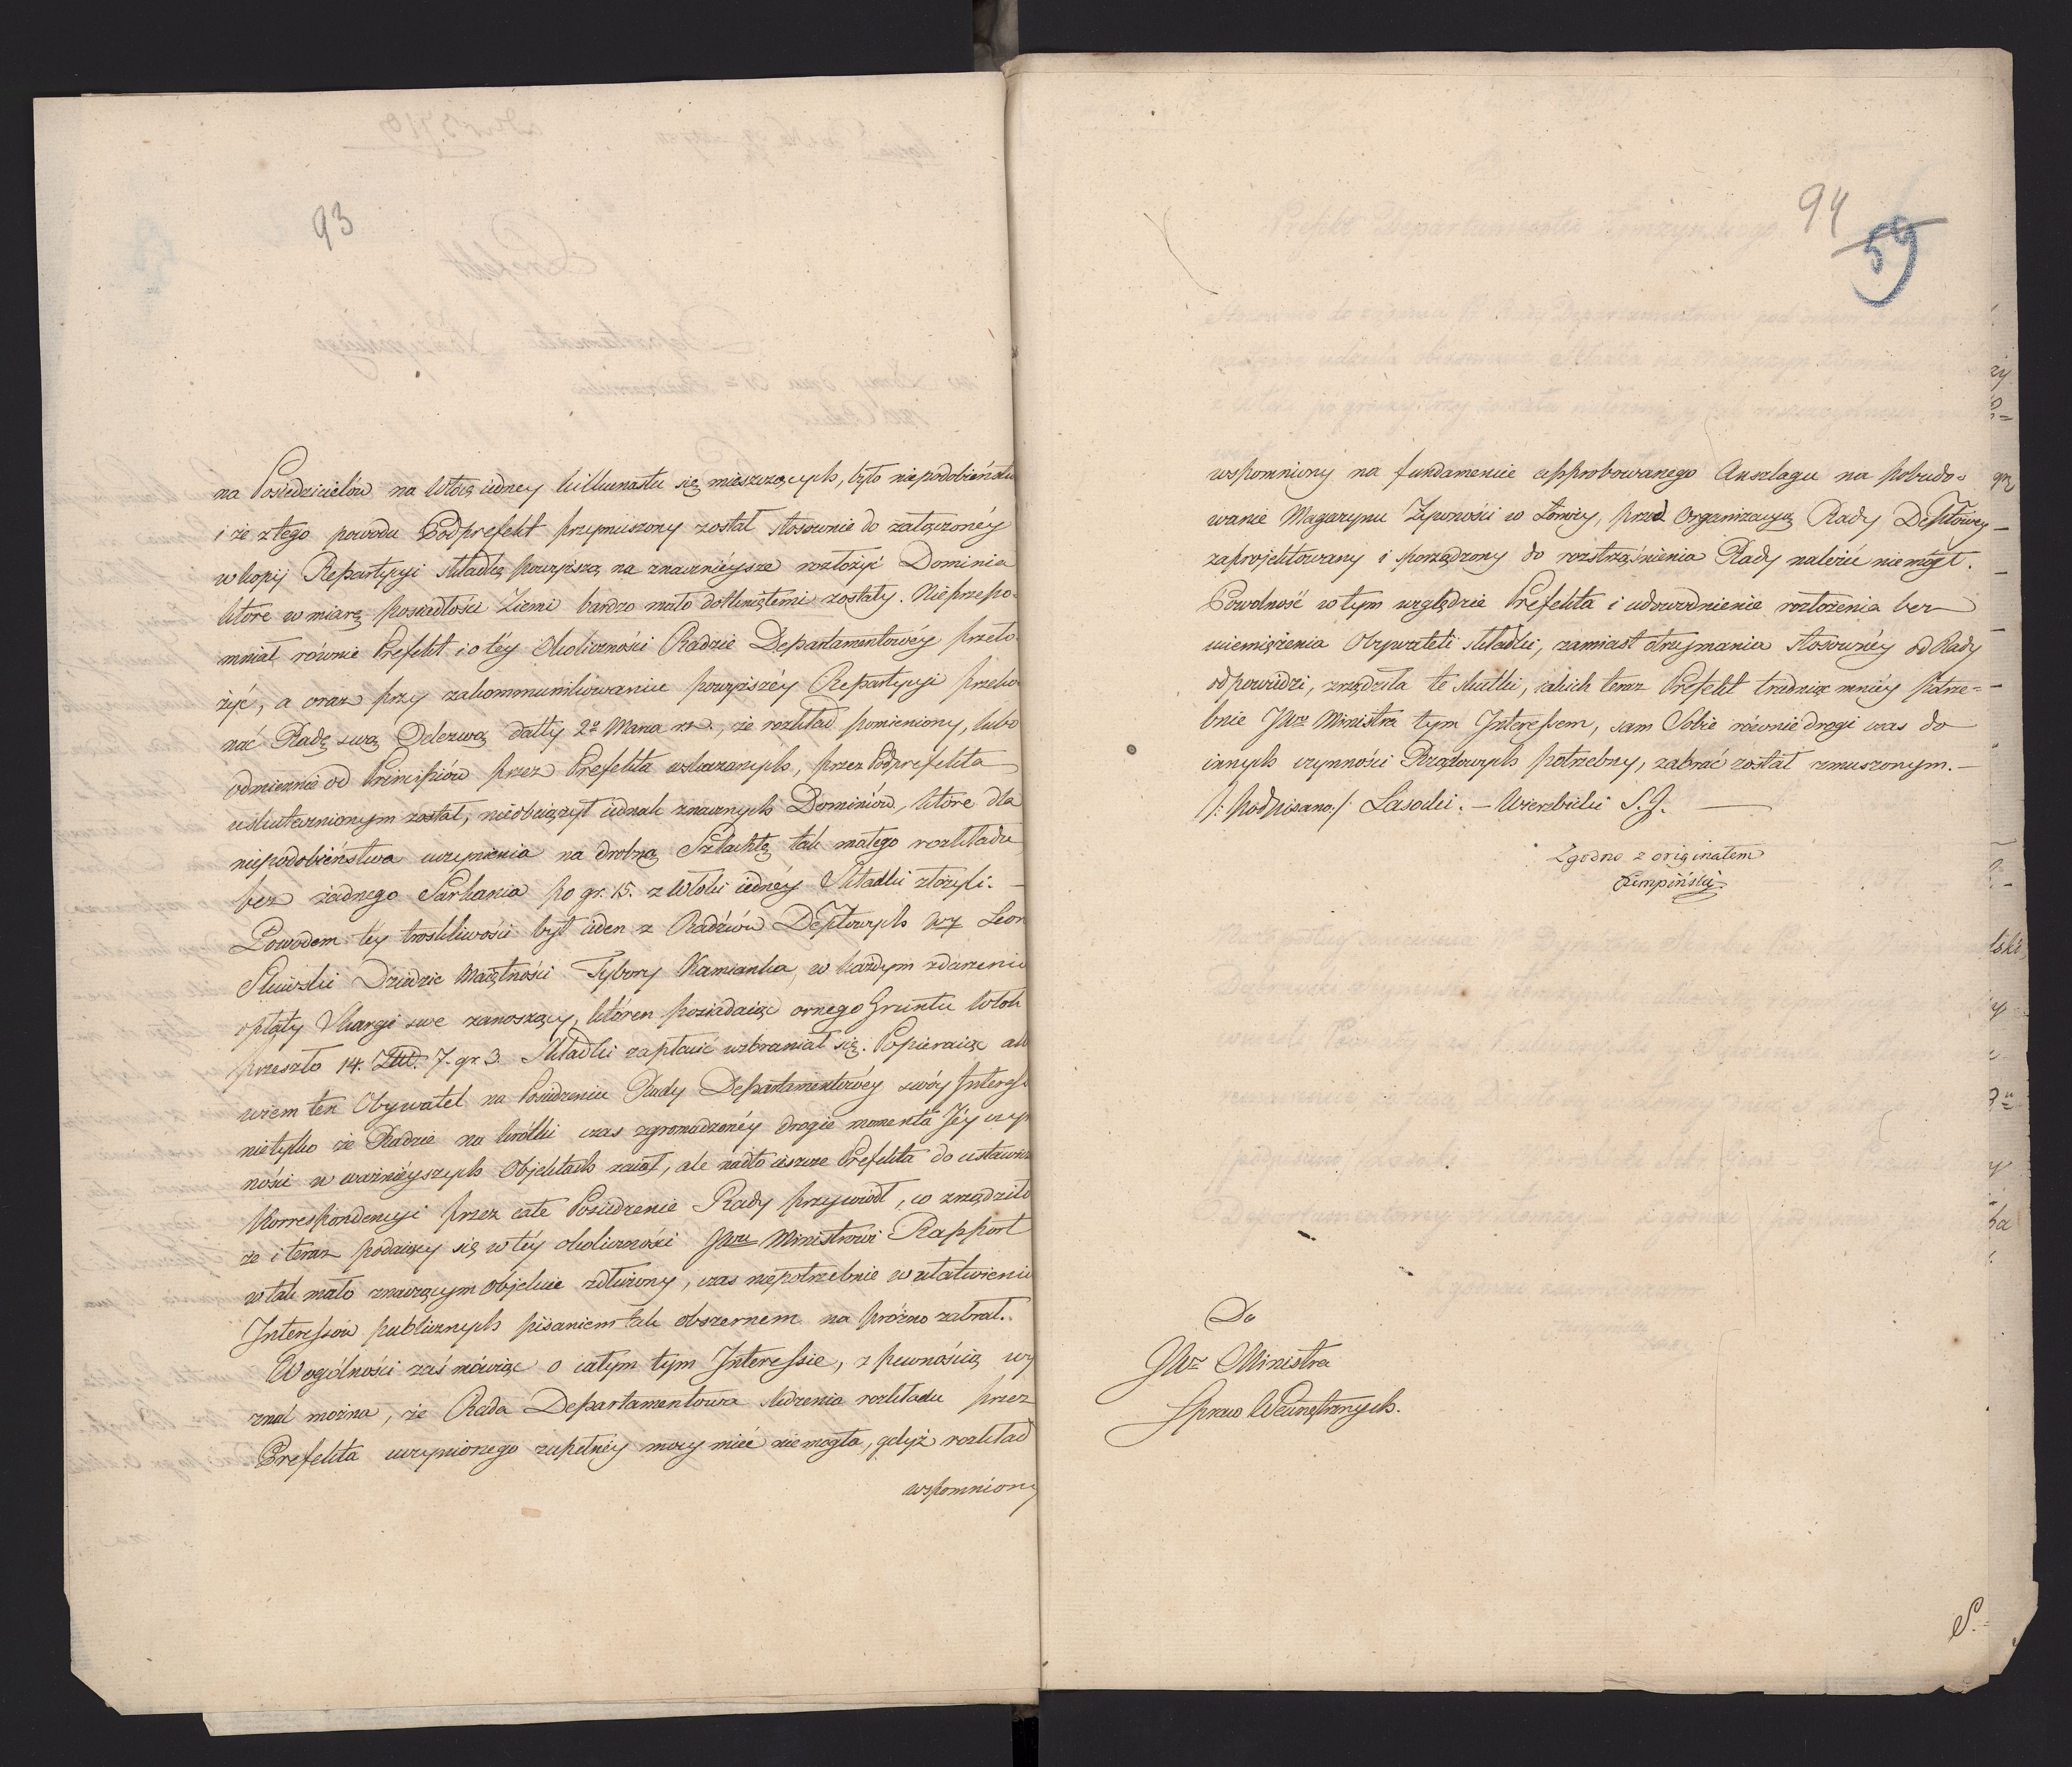 93
na Posiedzicielów na Włócę iedney kilkunastu się mieszczących, było niepodobieństw
i że z tego powodu Podprefekt przymuszony został stosownie do załączonéy
w kopij Repartycyi składkę powyższą na znacznieysze rozłożyć Dominia
które w miarę posiadłości Ziemi bardzo mało dotkniętemi zostały. Nieprzepo-
mniał równie Prefekt i o téy Okoliczności Radzie Departamentowéy przeło
żyć, a oraz przy zakommunikowaniu powyższéy Repartycyi przeko
nać Radę swą Odezwą datty 2° Marca r.b., że rozkład pomieniony, lubo
odmiennie od Principiów przez Prefekta wskazanych, przez Podprefekta
uskutecznionym został, nieobciążył iednak znacznych Dominiów, które dla
niepodobieństwa uczynienia na drobną Szlachtę tak małego rozkładu
bez żadnego Sarkania po gr. 15. z Włóki iednéy Składki złożyli. —
Powodem téy troskliwości był ieden z Radźców Deptowych WJ Leon
Skiwski Dziedzic Maiętności Tybory Kamianka, w każdym zdarzeniu
opłaty Skargi swe zanoszący, któren posiadaiąc ornego Gruntu Włók
przeszło 14. Złł. 7. gr. 3. Składki zapłacić wzbraniał się. Popieraiąc al
wiem ten Obywatel na Posiedzeniu Rady Departamentowéy swóy Interess
nietylko że Radzie na krótki czas zgromadzonéy drogie momenta Jéy czyn
ności w ważniéyszych Objektach zaiął, ale nadto ieszcze Prefekta do ustawicz
Korrespondencyi przez całe Posiedzenie Rady przywiódł, co zrządziło
że i teraz podaiący się w téy okoliczności JWu Ministrowi Rapport
w tak mało znaczącym Objekcie zdłużony, czas niepotrzebnie w ułatwieniu
Interessów publicznych pisaniem tak obszernem na próżno zabrał.
W ogólności zaś mówiąc o całym tym Interessie, z pewnością wy
znać można, że Rada Departamentowa śledzenia rozkładu przez
Prefekta uczynionego zupełnéy mocy mieć nie mogła, gdyż rozkład
wspomniony
94
59
wspomniony na fundamencie approbowanego Anszlagu na pobudo-
wanie Magazynu Żywności w Łomży, przed Organizacyą Rady Deptowey
zaprojektowany i sporządzony do rozstrząśnienia Rady należeć nie mógł.
Powolność w tym względzie Prefekta i udowodnienie rozłożenia bez
uciemiężenia Obywateli składki, zamiast otrzymania stosownéy od Rady
odpowiedzi, zrządziła te skutki, iakich teraz Prefekt trudniąc mniéy potrze-
bnie JWo Ministra tym Interessem, sam Sobie równie drogi czas do
innych czynności Rządowych potrzebny, zabrać został zmuszonym. —
/: Podpisano :/ Lasocki. — Wierzbicki S. J.
Zgodno z originałem
Kempiński
Do
JWo Ministra
Spraw Wewnętrznych.
S.